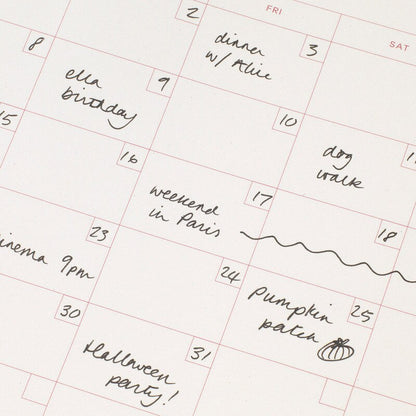 FRI
SAT
2
dinner
w/ Alice
3
8
ella
birthday
9
10
dog
walk
15
16
weekend
in Paris
17
18
inema 9pm
23
24
Pumpkin
patch
25
30
Halloween
party!
31